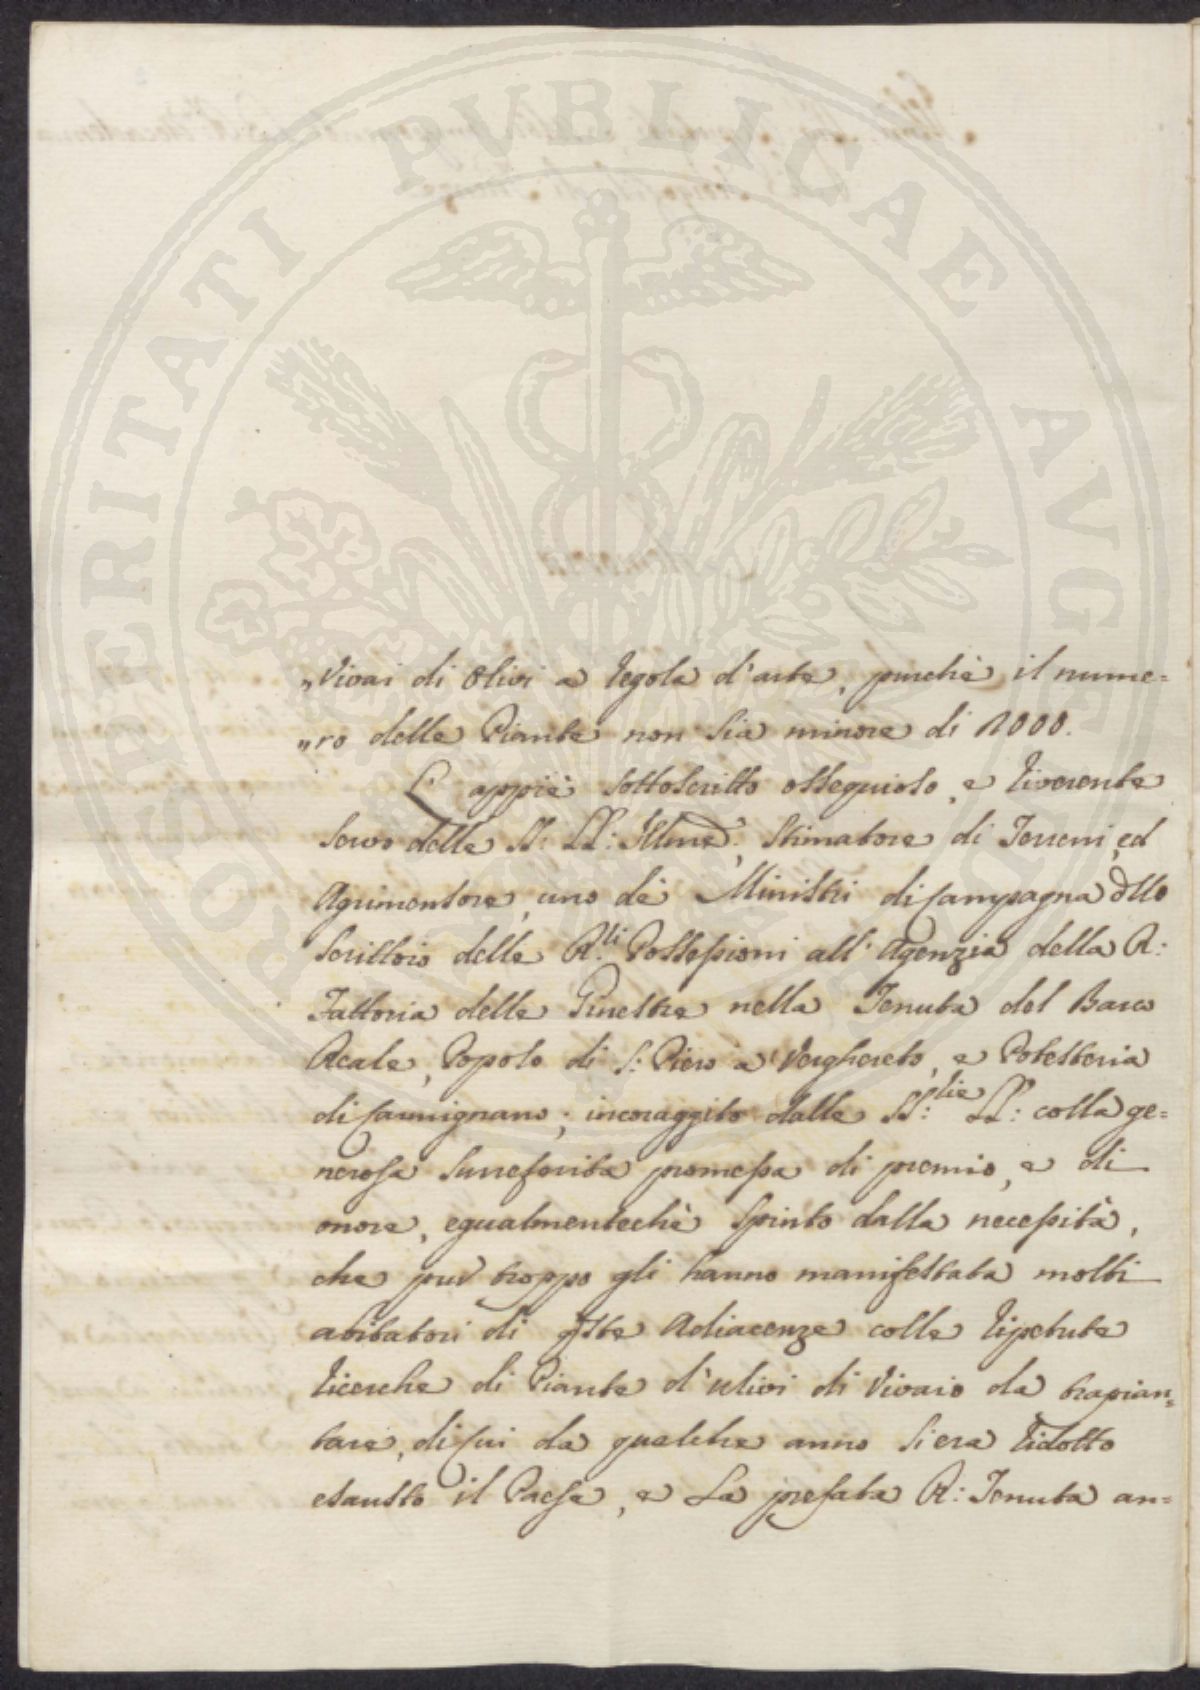 PROSPERITATI PUBLICAE AUGENDAE
„Vivai di Olivi a regola d'arte, purchè il nume=
„ro delle Piante non sia minore di 1000.
L' appiè sottoscritto ossequioso, e riverente
servo delle SS: LL: Illme:, Stimatore di Terreni, ed
Agrimensore, uno de' Ministri di Campagna dllo
Scrittoio delle R:li Possessioni all' Agenzia della R:
Fattoria delle Ginestre nella Tenuta del Barco
Reale, Popolo di S: Piero a Verghereto, e Potesteria
di Carmignano; incoraggito dalle SS:rie LL: colla ge=
nerosa surreferita promessa di premio, e di
onore, egualmentechè spinto dalla necessità,
che pur troppo gli hanno manifestata molti
abitatori di qste Adiacenze colle ripetute
ricerche di Piante d'ulivi di Vivaio da trapian=
tare, di cui da qualche anno si era ridotto
esausto il Paese, e La prefata R: Tenuta an=